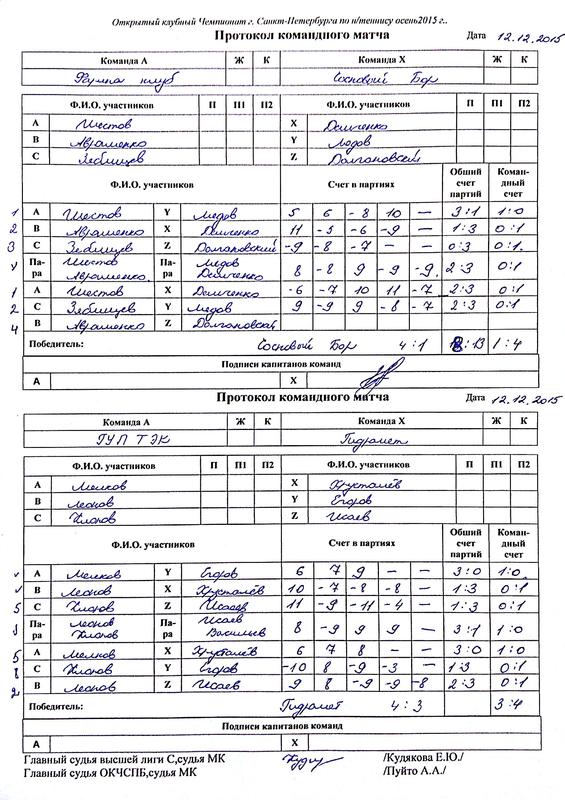 Открытый клубный Чемпионат г. Санкт-Петербурга по н/теннису осень2015 г..
Протокол командного матча Дата 12.12.2015
Команда А Ж К Команда Х Ж К
клуб Сосновый Бор
Ф.И.О. участников П П1 П2 Ф.И.О. участников П П1 П2
А Шестов Х Демченко
В Авраменко Y Медов
С Зебницев Z Долгановский
Ф.И.О. участников Счет в партиях Общий счет партий Коман-дный счет
1 А Шестов Y Медов 5 6 -8 10 — 3:1 1:0
2 В Авраменко Х Демченко 11 -5 -6 -9 — 1:3 0:1
3 С Зебницев Z Долгановский -9 -8 -7 — — 0:3 0:1
Па-ра Шестов Авраменко Па-ра Медов Демченко 8 -8 9 -9 -9 2:3 0:1
1 А Шестов Х Демченко -6 -7 10 11 -7 2:3 0:1
2 С Зебницев Y Медов 9 -9 9 -8 -7 2:3 0:1
4 В Авраменко Z Долгановский
Победитель: Сосновый Бор 4:1 :13 1:4
Подписи капитанов команд
А Х
Протокол командного матча Дата 12.12.2015
Команда А Ж К Команда Х Ж К
ГУП ТЭК Гидромет
Ф.И.О. участников П П1 П2 Ф.И.О. участников П П1 П2
А Мелков Х Хрусталёв
В Леонов Y Егоров
С Хлопов Z Исаев
Ф.И.О. участников Счет в партиях Общий счет партий Коман-дный счет
А Мелков Y Егоров 6 7 9 — — 3:0 1:0
В Леонов Х Хрусталёв 10 -7 -8 -8 — 1:3 0:1
5 С Хлопов Z Исаев 11 -9 -11 -4 — 1:3 0:1
Па-ра Леонов Хлопов Па-ра Исаев Васильев 8 -9 9 9 — 3:1 1:0
5 А Мелков Х Хрусталёв 6 7 8 — — 3:0 1:0
8 С Хлопов Y Егоров -10 8 -9 -3 — 1:3 0:1
2 В Леонов Z Исаев 9 8 -9 -9 -8 2:3 0:1
Победитель: Гидромет 4:3 3:4
Подписи капитанов команд
А Х
Главный судья высшей лиги С,судья МК /Кудякова Е.Ю./
Главный судья ОКЧСПБ,судья МК /Пуйто А.А./